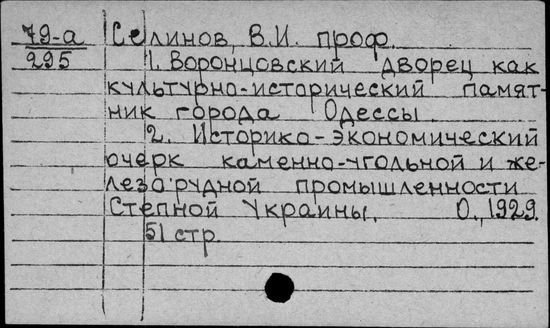 79-а Селинов, В.И. проф.
295 1. Воронцовский дворец как
культурно-исторический памят-
ник города Одессы.
2. Историко-экономический
очерк каменно-угольной и же-
лезорудной промышленности
Степной Украины. О., 1929.
51 стр.